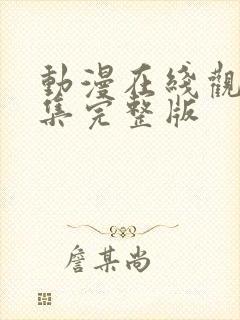 動漫在綫觀
集完整版
詹某尚